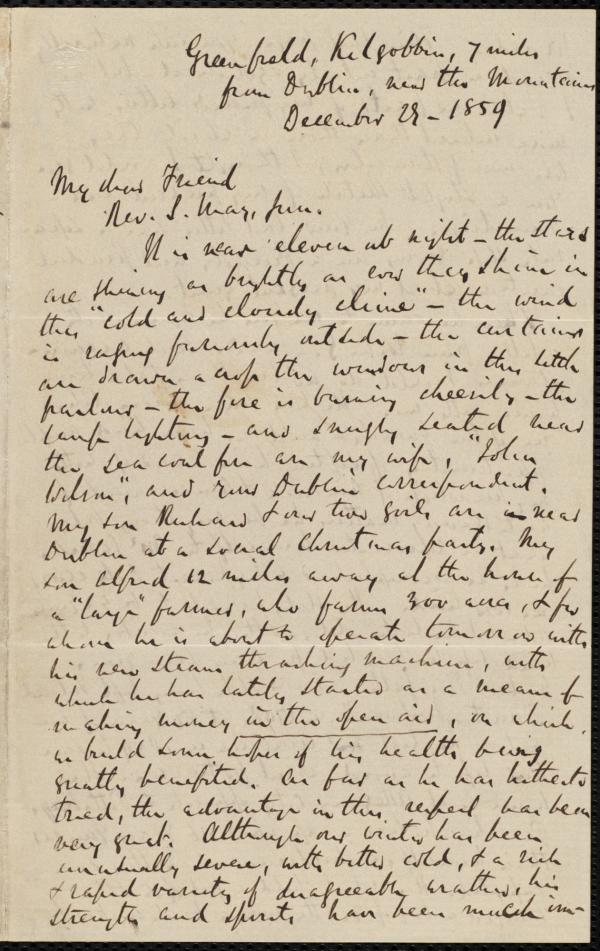 Greenfield, Kilgobbin, 7 miles
from Dublin, near the Mountains
December 29 - 1859
My dear Friend
Rev. S. May, jun.
It is near eleven at night - the stars
are shining as brightly as ever they shine in
this "cold and cloudy clime" - the wind
is raging furiously outside - the curtains
are drawn across the windows in this little
parlour - the fire is burning cheerily - the
lamp lighting - and snugly seated near
the sea coal fire are my wife, "John
Wilson", and your Dublin correspondent.
My son Richard & our two girls are in near
Dublin at a social Christmas party. My
son Alfred 12 miles away at the house of
a "large" farmer, who farms 300 acres, & for
whom he is about to operate tomorrow with
his new steam thrashing machine, with
which he has lately started as a means of
making money in the open air, on which
we build some hopes of his health being
greatly benefited. As far as he has hitherto
tried, the advantage in this respect has been
very great. Although our winter has been
unusually severe, with bitter cold, & a rich
& rapid variety of disagreeable weather, his
strength and spirits have been much im-